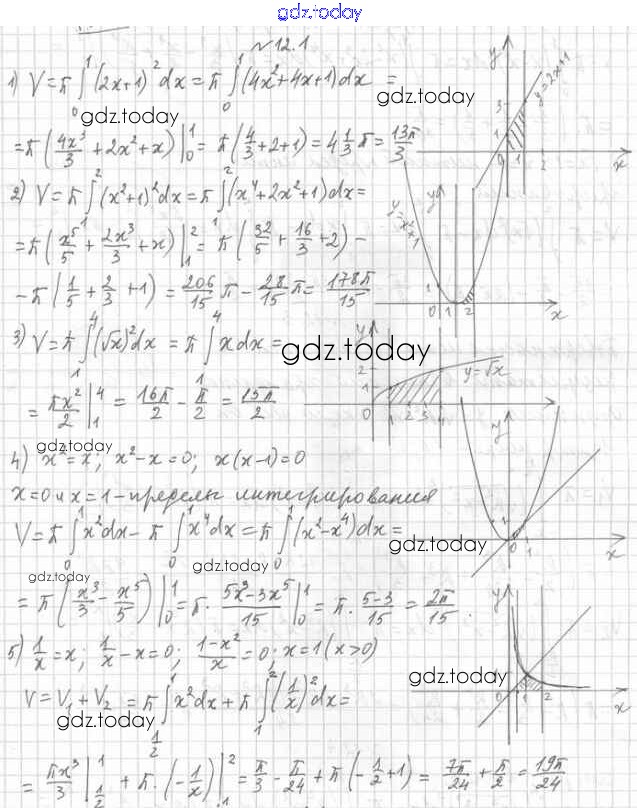 gdz.today
№12.1
1) V = π ∫₀¹ (2x+1)² dx = π ∫₀¹ (4x²+4x+1) dx =
gdz.today
gdz.today
= π (4x³/3 + 2x² + x) |₀¹ = π (4/3 + 2 + 1) = 4 1/3 π = 13π/3
y
y=2x+1
3
1
0 1 2
x
2) V = π ∫₁² (x²+1)² dx = π ∫₁² (x⁴+2x²+1) dx =
= π (x⁵/5 + 2x³/3 + x) |₁² = π (32/5 + 16/3 + 2) –
– π (1/5 + 2/3 + 1) = 206/15 π – 28/15 π = 178π/15
y
y=x²+1
1
0 1 2
x
3) V = π ∫₁⁴ (√x)² dx = π ∫₁⁴ x dx =
gdz.today
= πx²/2 |₁⁴ = 16π/2 – π/2 = 15π/2
y
2
1
y=√x
0 1 2 3 4
x
gdz.today
4) x² = x; x² – x = 0; x(x–1) = 0
x=0 и x=1 – пределы интегрирования
V = π ∫₀¹ x² dx – π ∫₀¹ x⁴ dx = π ∫₀¹ (x² – x⁴) dx =
gdz.today
gdz.today
gdz.today
= π (x³/3 – x⁵/5) |₀¹ = π · 5x³–3x⁵/15 |₀¹ = π · 5–3/15 = 2π/15.
y
1
0 1
x
5) 1/x = x; 1/x – x = 0; 1–x²/x = 0; x = 1 (x>0)
gdz.today
V = V₁ + V₂ = π ∫_{1/2}¹ x² dx + π ∫₁² (1/x)² dx =
gdz.today
= πx³/3 |_{1/2}¹ + π · (–1/x) |₁² = π/3 – π/24 + π (–1/2 + 1) = 7π/24 + π/2 = 19π/24
y
1 2
x